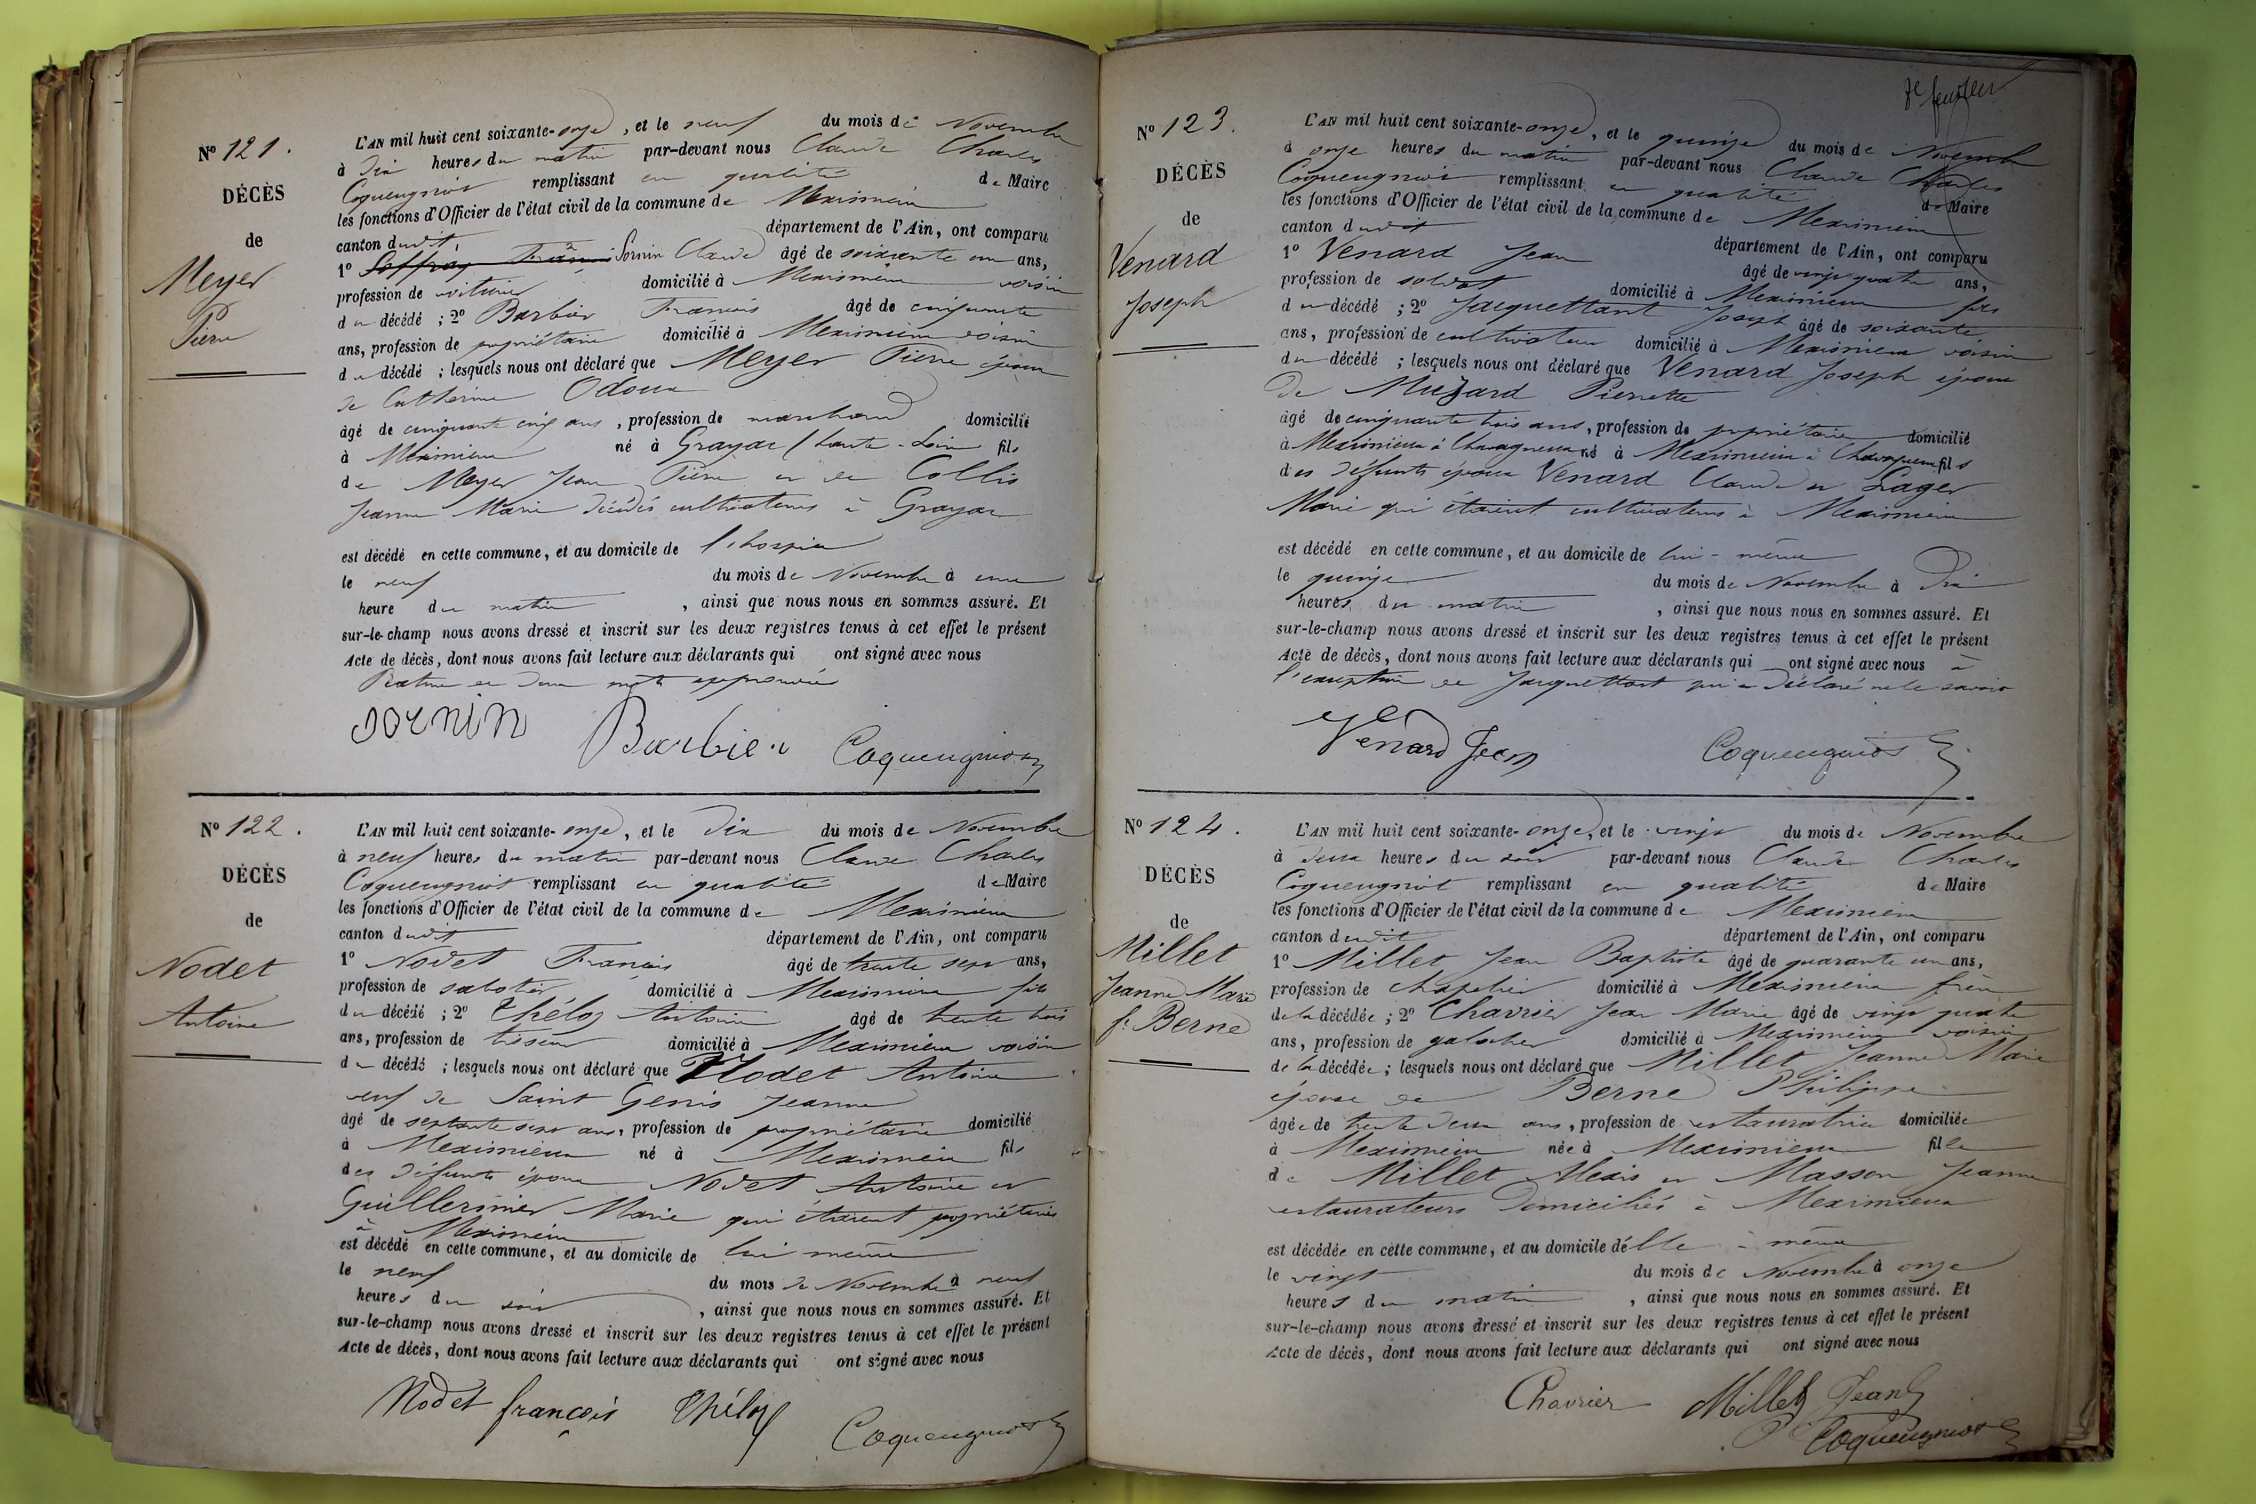 Nº 121.
DÉCÈS
de
Meyer
Pierre
L'AN mil huit cent soixante-onze, et le neuf du mois de Novembre
à dix heures du matin par-devant nous Claude Charles
Coqueugniot remplissant en qualité de Maire
les fonctions d'Officier de l'état civil de la commune de Meximieux
canton dudit, département de l'Ain, ont comparu
1º Soffray François Sornin Claude âgé de soixante un ans,
profession de voiturier domicilié à Meximieux voisin
du décédé ; 2º Barbier François âgé de cinquante
ans, profession de propriétaire domicilié à Meximieux voisin
du décédé ; lesquels nous ont déclaré que Meyer Pierre époux
de Catherine Odoux
âgé de cinquante cinq ans, profession de marchand domicilié
à Meximieux né à Grazac (haute-Loire fils
de Meyer Jean Pierre et de Collis
Jeanne Marie décédés cultivateurs à Grazac
est décédé en cette commune, et au domicile de l'hospice
le neuf du mois de Novembre à une
heure du matin, ainsi que nous nous en sommes assuré. Et
sur-le-champ nous avons dressé et inscrit sur les deux registres tenus à cet effet le présent
Acte de décès, dont nous avons fait lecture aux déclarants qui ont signé avec nous
Rature de deux mots approuvée
Sornin Barbier Coqueugniot
Nº 122.
DÉCÈS
de
Nodet
Antoine
L'AN mil huit cent soixante-onze, et le dix du mois de Novembre
à neuf heures du matin par-devant nous Claude Charles
Coqueugniot remplissant en qualité de Maire
les fonctions d'Officier de l'état civil de la commune de Meximieux
canton dudit département de l'Ain, ont comparu
1º Nodet François âgé de trente sept ans,
profession de sabotier domicilié à Meximieux fils
du décédé ; 2º Théloz Antoine âgé de trente trois
ans, profession de tisseur domicilié à Meximieux voisin
du décédé ; lesquels nous ont déclaré que Nodet Antoine
veuf de Saint Genis Jeanne
âgé de septante sept ans, profession de propriétaire domicilié
à Meximieux né à Meximieux fils
des défunts époux Nodet Antoine et
Guillermier Marie qui étaient propriétaires
à Meximieux
est décédé en cette commune, et au domicile de lui même
le neuf du mois de Novembre à neuf
heures du soir, ainsi que nous nous en sommes assuré. Et
sur-le-champ nous avons dressé et inscrit sur les deux registres tenus à cet effet le présent
Acte de décès, dont nous avons fait lecture aux déclarants qui ont signé avec nous
Nodet françois Théloz Coqueugniot
7e feuillet
Nº 123.
DÉCÈS
de
Venard
Joseph
L'AN mil huit cent soixante-onze, et le quinze du mois de Novembre
à onze heures du matin par-devant nous Claude Charles
Coqueugniot remplissant en qualité de Maire
les fonctions d'Officier de l'état civil de la commune de Meximieux
canton dudit département de l'Ain, ont comparu
1º Venard Jean âgé de vingt quatre ans,
profession de soldat domicilié à Meximieux fils
du décédé ; 2º Jacquettant Joseph âgé de soixante
ans, profession de cultivateur domicilié à Meximieux voisin
du décédé ; lesquels nous ont déclaré que Venard Joseph époux
de Muzard Pierrette
âgé de cinquante trois ans, profession de propriétaire domicilié
à Meximieux à Chavagneux né à Meximieux à Chavagneux fils
des défunts époux Venard Claude et Lager
Marie qui étaient cultivateurs à Meximieux
est décédé en cette commune, et au domicile de lui-même
le quinze du mois de Novembre à dix
heures du matin, ainsi que nous nous en sommes assuré. Et
sur-le-champ nous avons dressé et inscrit sur les deux registres tenus à cet effet le présent
Acte de décès, dont nous avons fait lecture aux déclarants qui ont signé avec nous à
l'exception de Jacquettant qui a déclaré ne le savoir
Venard Jean Coqueugniot
Nº 124.
DÉCÈS
de
Millet
Jeanne Marie
fe Berne
L'AN mil huit cent soixante-onze, et le vingt du mois de Novembre
à deux heures du soir par-devant nous Claude Charles
Coqueugniot remplissant en qualité de Maire
les fonctions d'Officier de l'état civil de la commune de Meximieux
canton dudit département de l'Ain, ont comparu
1º Millet Jean Baptiste âgé de quarante un ans,
profession de chapelier domicilié à Meximieux frère
de la décédée ; 2º Chavrier Jean Marie âgé de vingt quatre
ans, profession de galocher domicilié à Meximieux voisin
de la décédée ; lesquels nous ont déclaré que Millet Jeanne Marie
épouse de Berne Philippe
âgée de trente deux ans, profession de restauratrice domiciliée
à Meximieux née à Meximieux fille
de Millet Alexis et Masson Jeanne
restaurateurs domiciliés à Meximieux
est décédée en cette commune, et au domicile d'elle-même
le vingt du mois de Novembre à onze
heures du matin, ainsi que nous nous en sommes assuré. Et
sur-le-champ nous avons dressé et inscrit sur les deux registres tenus à cet effet le présent
Acte de décès, dont nous avons fait lecture aux déclarants qui ont signé avec nous
Chavrier Millet Jean
Coqueugniot